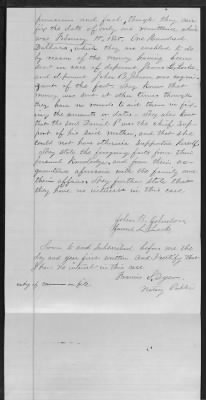 and fact, though they can
fix the date of only one remittance, which
was February 1st, 186 . One Hundred
Dollars, which they are enabled to do
by reason of the money having been
sent in care of deponent
and deponent John B. Johnson was
of the fact. They know that
money was sent at other times though
they have no records to aid them in fix-
ing the amounts or dates. They also know
that the son Daniel P was the chief sup-
port of his said mother, and that she
could not have otherwise supported herself.
They state the foregoing facts from their
personal knowledge, and from their
acquaintance with the family and
their affairs. They further state that
they have no interest in this case.
John B. Johnson
Sworn to and subscribed before me the
day and year first written. And I certify that
I have no interest in this case
Notary Public
on file